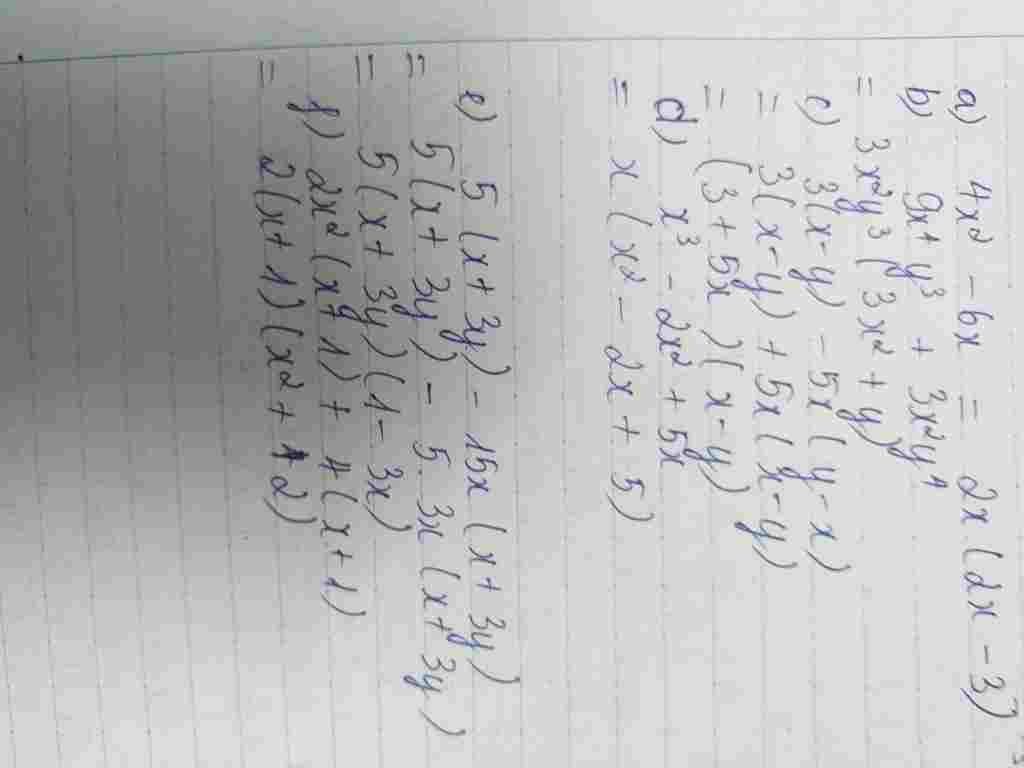 a) 4x² - 6x = 2x(2x - 3)
b) 9x⁴y³ + 3x²y⁴
= 3x²y³(3x² + y)
c) 3(x-y) - 5x(y-x)
= 3(x-y) + 5x(x-y)
= (3 + 5x)(x-y)
d) x³ - 2x² + 5x
= x(x² - 2x + 5)
e) 5(x+3y) - 15x(x+3y)
= 5(x+3y) - 5.3x(x+3y)
= 5(x+3y)(1-3x)
f) 2x²(x+1) + 4(x+1)
= 2(x+1)(x² + 2)